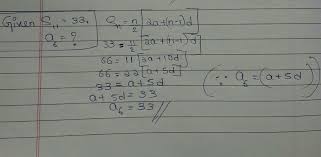 Given S₁₁ = 33.
a₆ = ?
Sₙ = n/2 [2a+(n-1)d]
33 = 11/2 [2a+(11-1)d]
66 = 11 [2a+10d]
66 = 22 [a+5d]
33 = a+5d
a+5d = 33
a₆ = 33 //
(∵ a₆ = (a+5d)